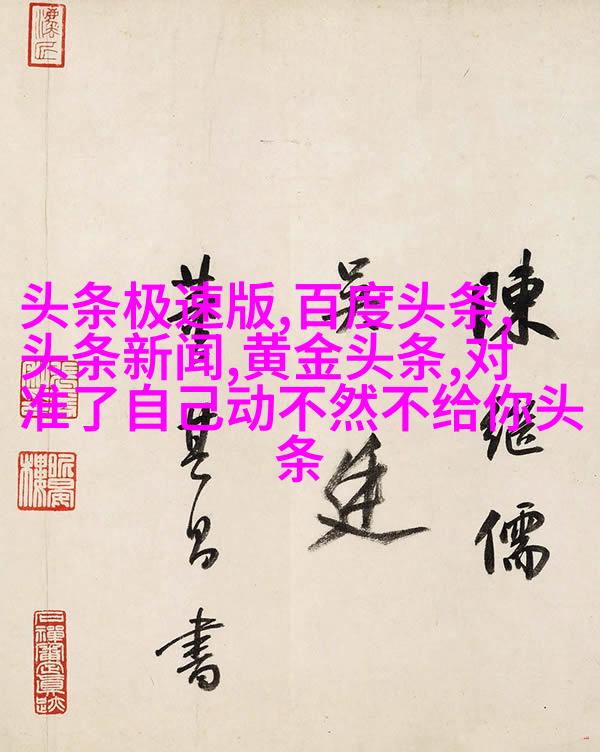 头条极速版,百度头条,
头条新闻,黄金头条,对
准了自己动不然不给你头
条
陳繼儒
吳廷
董其昌書